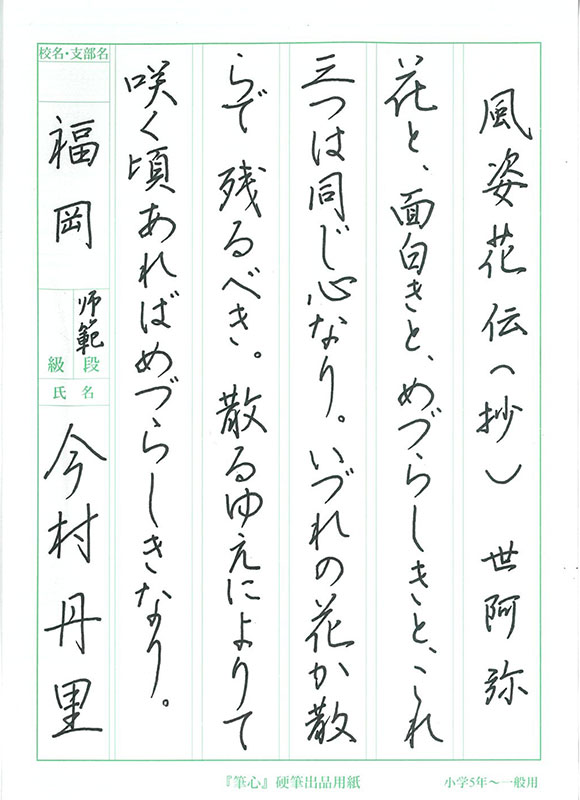 風姿花伝(抄) 世阿弥
花と、面白きと、めづらしきと、これ
三つは同じ心なり。いづれの花か散
らで残るべき。散るゆえによりて
咲く頃あればめづらしきなり。
校名・支部名
福岡
師範
級 段
氏名
今村丹里
『筆心』硬筆出品用紙
小学5年〜一般用